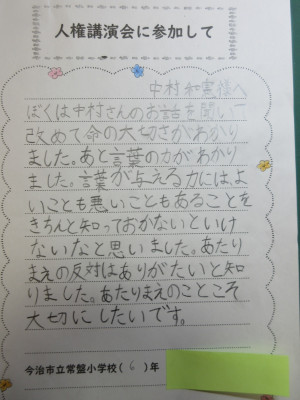 人権講演会に参加して
中村和憲様へ
ぼくは中村さんのお話を聞いて
改めて命の大切さがわかり
ました。あと言葉の力がわかり
ました。言葉が与える力にはよ
いことも悪いこともあることを
きちんと知っておかないといけ
ないなと思いました。あたり
まえの反対はありがたいと知
りました。あたりまえのことこそ
大切にしたいです。
今治市立常盤小学校(6)年